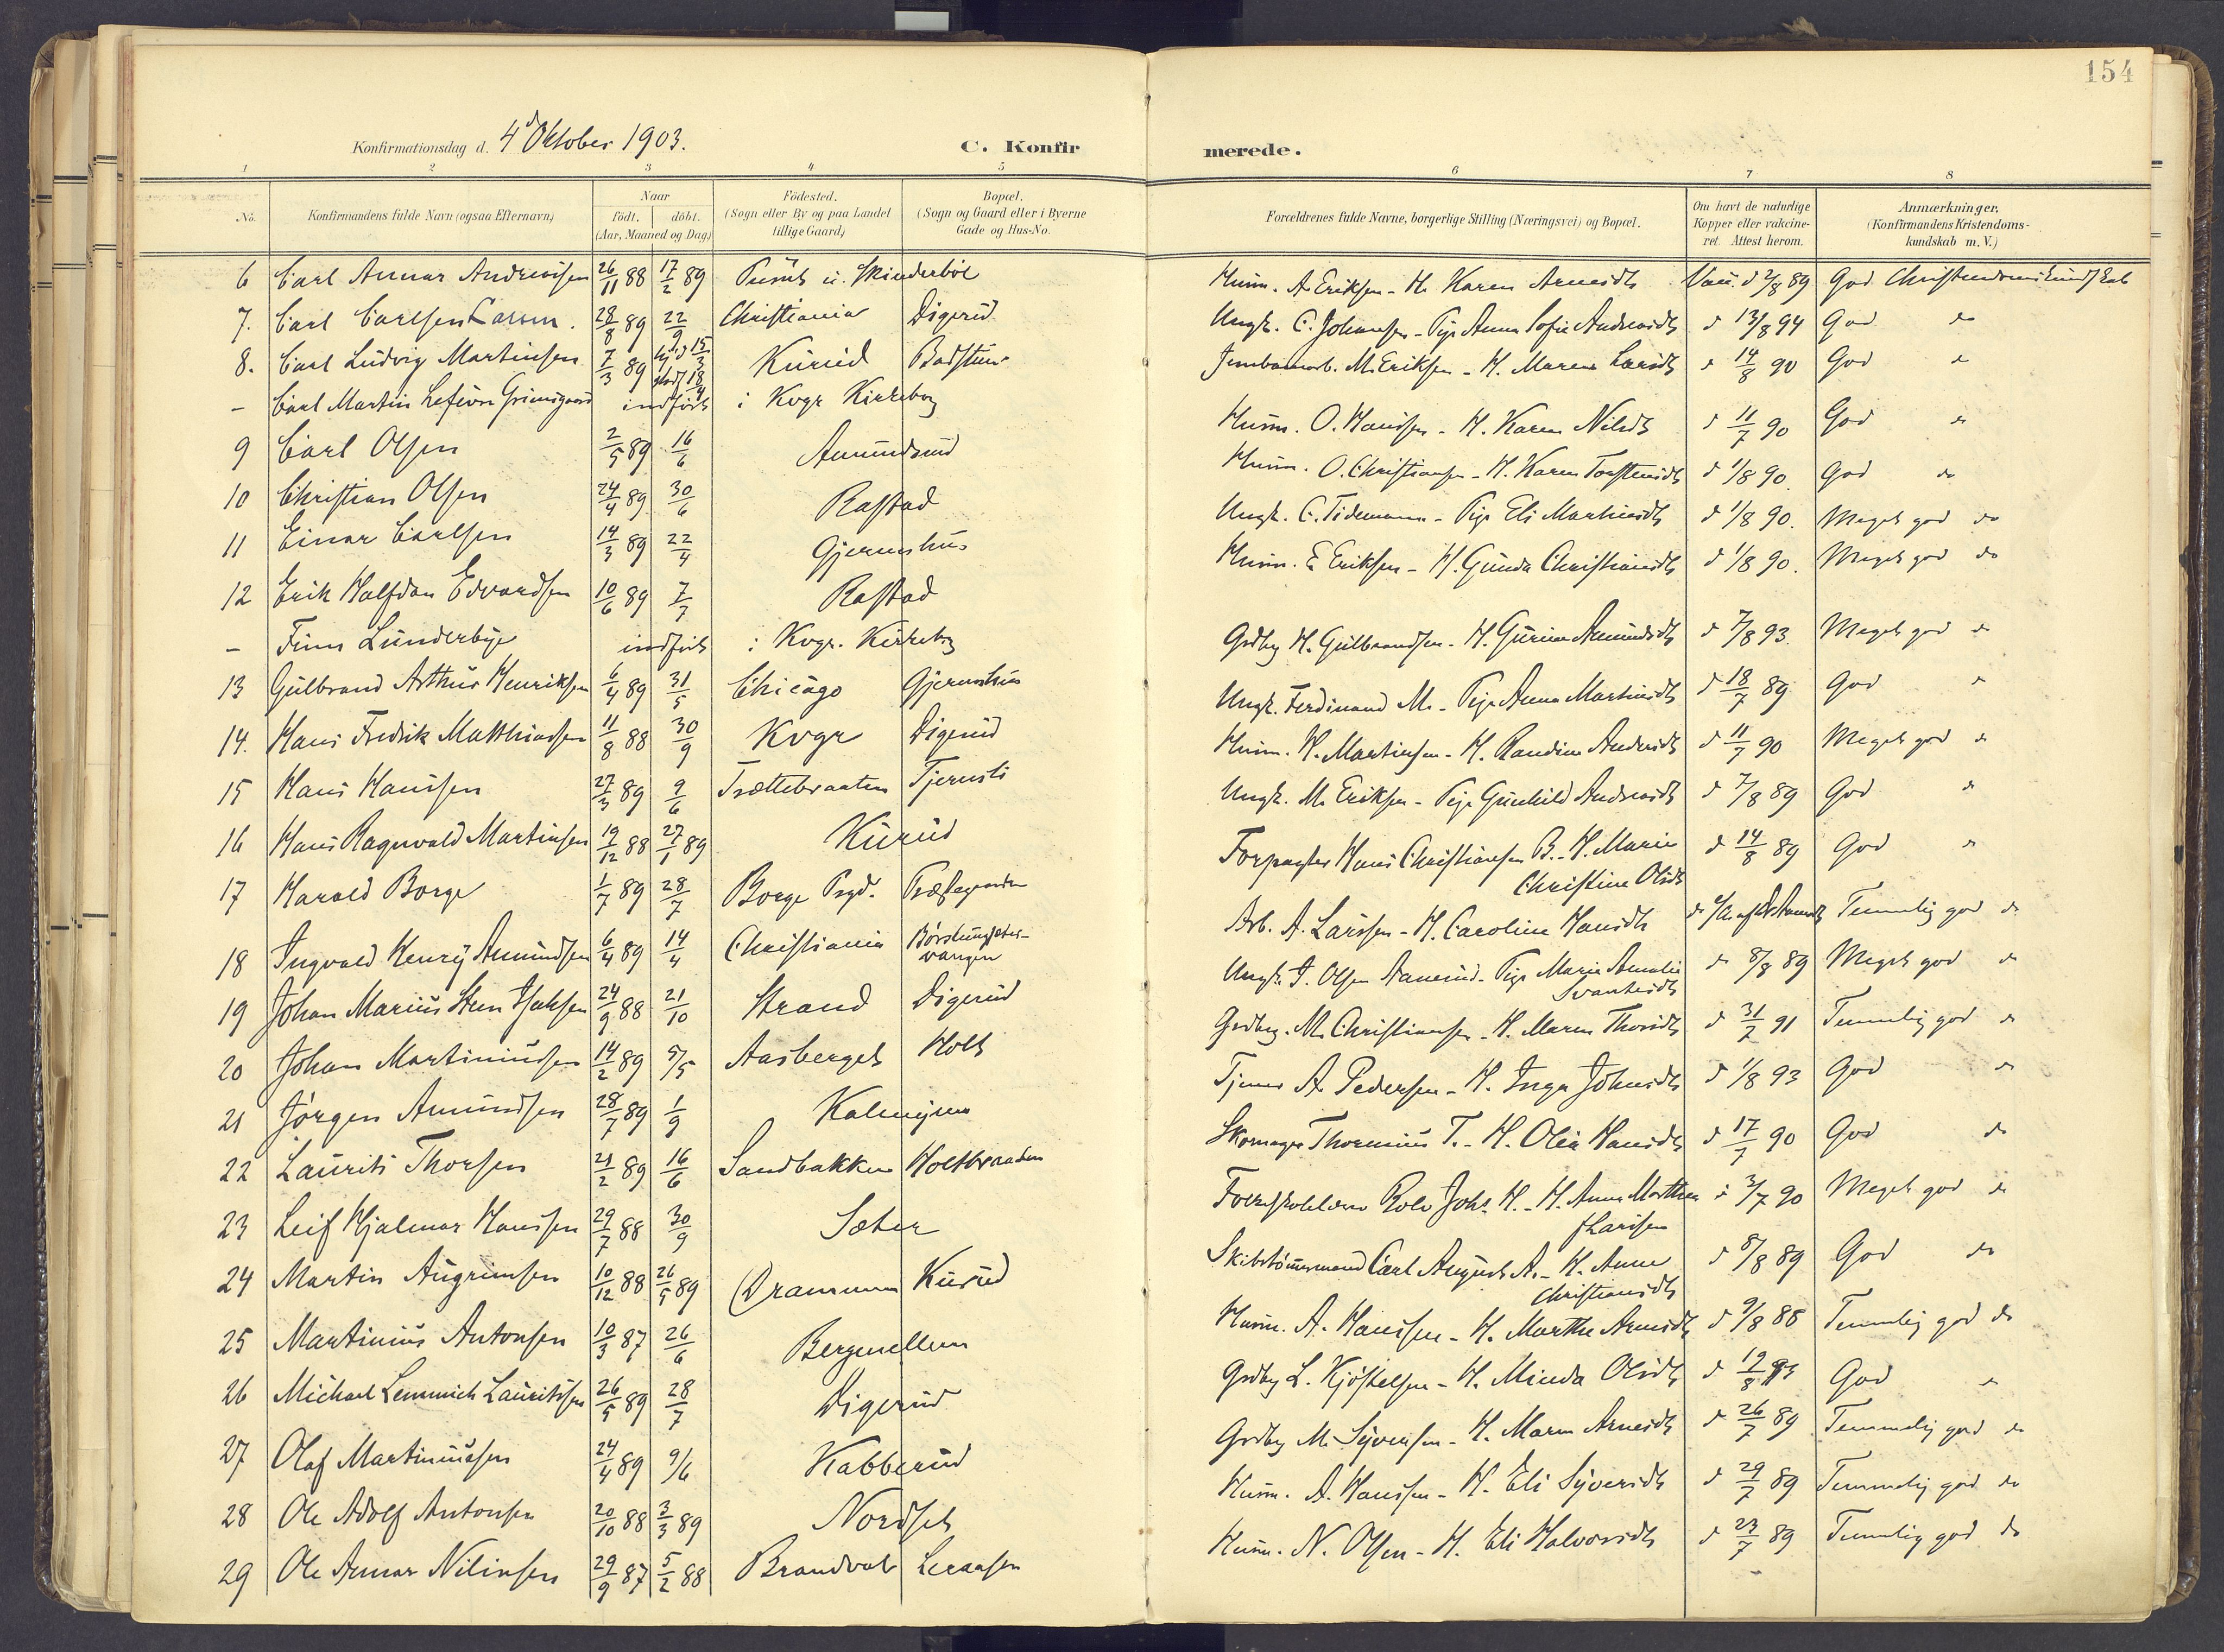 154
Konfirmationsdag d. 4d Oktober 1903.
C. Konfir
merede.
1 2 3 4 5
6 7 8
No.
Konfirmandens fulde Navn (ogsaa Efternavn)
Naar
födt. döbt.
(Aar, Maaned og Dag)
Födested.
(Sogn eller By og paa Landet
tillige Gaard)
Bopæl.
(Sogn og Gaard eller i Byerne
Gade og Hus-No.
Forældrenes fulde Navne, borgerlige Stilling (Næringsvei) og Bopæl.
Om havt de naturlige
Kopper eller vakcine-
ret. Attest herom.
Anmærkninger.
(Konfirmandens Kristendoms-
kundskab m. V.)
6 Carl Annar Andreassen 26/11 88 17/2 89
7. Carl Carlsen 28/8 89 22/9 Christiania Digerud
8. Carl Ludvig Martinsen 7/3 89 Kurud Badstun
- Carl Martin indført i Kvgr Kirkebog
9 Carl Olsen 2/5 89 16/6 Amundsrud
10 Christian Olsen 24/4 89 30/6 Rastad
11 Einar Carlsen 14/3 89 22/4 Gjermshus
12 Erik Halfdan Edvardsen 10/6 89 7/7 Rastad
- Finn Lunderbye indført i Kvgr. Kirkebog
13 Gulbrand Arthur Henriksen 6/4 89 31/5 Chicago Gjermshus
14. Hans Fredrik Matthiasen 11/8 88 30/9 Kvgr Digerud
15 Hans Hansen 27/3 89 9/6 Trættebraaten Tjernsli
16 Hans Ragnvald Martinsen 19/12 88 27/1 89 Kurud
17 Harald Borge 1/7 89 28/7 Borge Psgd.
18 Ingvald Henry Amundsen 6/4 89 14/4 Christiania
19 Johan Marius Isaksen 24/9 88 21/10 Strand Digerud
20 Johan Martiniussen 14/2 89 5/5 Aasberget Holt
21 Jörgen Amundsen 28/7 89 1/9
22 Laurits Thorsen 21/2 89 16/6 Sandbakken Holtbraaden
23 Leif Hjalmar Hansen 29/7 88 30/9 Sæter
24 Martin 10/12 88 26/5 89 Drammen Kurud
25 Martinius Antonsen 10/3 87 26/6
26 Michael Lemmich Lauritssen 26/5 89 28/7 Digerud
27 Olaf Martiniussen 24/4 89 9/6 Kabberud
28 Ole Adolf Antonsen 20/10 88 3/3 89 Nordset
29 Ole Arnar Nilsen 29/9 87 5/2 88 Brandval Leraasen
Husm. A. Eriksen - H. Karen Arnesdt Vac. d 2/8 89 God Christendomskundskab
Ungk. C. Johansen - Pige Anna Sofie Andreasdt d 13/8 94 God do
M. Eriksen - H. Maren Larsdt d 14/8 90 God do
Husm. O. Hansen - H. Karen Nilsdt d 11/7 90 God do
Husm. O. Christiansen - H. Karen Torstensdt d 1/8 90. God do
Ungk. C. Tidemann - Pige Eli Martinsdt d 1/8 90. Meget god do
Husm. E Eriksen - H. Gunda Christiansdt d 1/8 90. Meget god do
Grdbrg H. Gulbrandsen - H. Gurine Amundsdt d 7/8 93. Meget god do
Ungk. Ferdinand M. - Pige Anna Martinsdt d 18/7 89 God do
Husm. H. Martinsen - H. Randine Andersdt d 11/7 90 Meget god do
Ungk. M. Eriksen - Pige Gunhild Andreasdt d 7/8 89 God do
Forpagter Hans Christiansen B. - H. Marie
Christine Olsdt
d 14/8 89 God do
Arb. A. Larsen - H. Caroline Hansdt Temmelig god do
Ungk. J. Olsen - Pige Marie Amalie
d 8/8 89 Meget god do
Grdbrg. M. Christiansen - H. Maren Thorsdt d 31/7 91 Temmelig god do
Tjener A. Pedersen - H. Inga Johnsdt d 1/8 93 God do
Skomager Thormius T. - H. Olea Hansdt d 17/7 90 God do
Rolv Johs H. - H. Anna Marthea
d 3/7 90 Meget god do
Skibstömmermand Carl August A. - H. Anne
Christiansdt
d 8/8 89 God do
Husm. A. Hansen - H. Marthe Arnesdt d 9/8 88 Temmelig god do
Grdbrg L. Kjöstelsen - H. Minda Olsdt d 19/8 93 God do
Grdbrg M. Syversen - H. Maren Arnesdt d 26/7 89 Temmelig god do
Husm. A. Hansen - H. Eli Syversdt d 29/7 89 Temmelig god do
Husm. N. Olsen - H. Eli Halvorsdt d 23/7 89 Temmelig god do